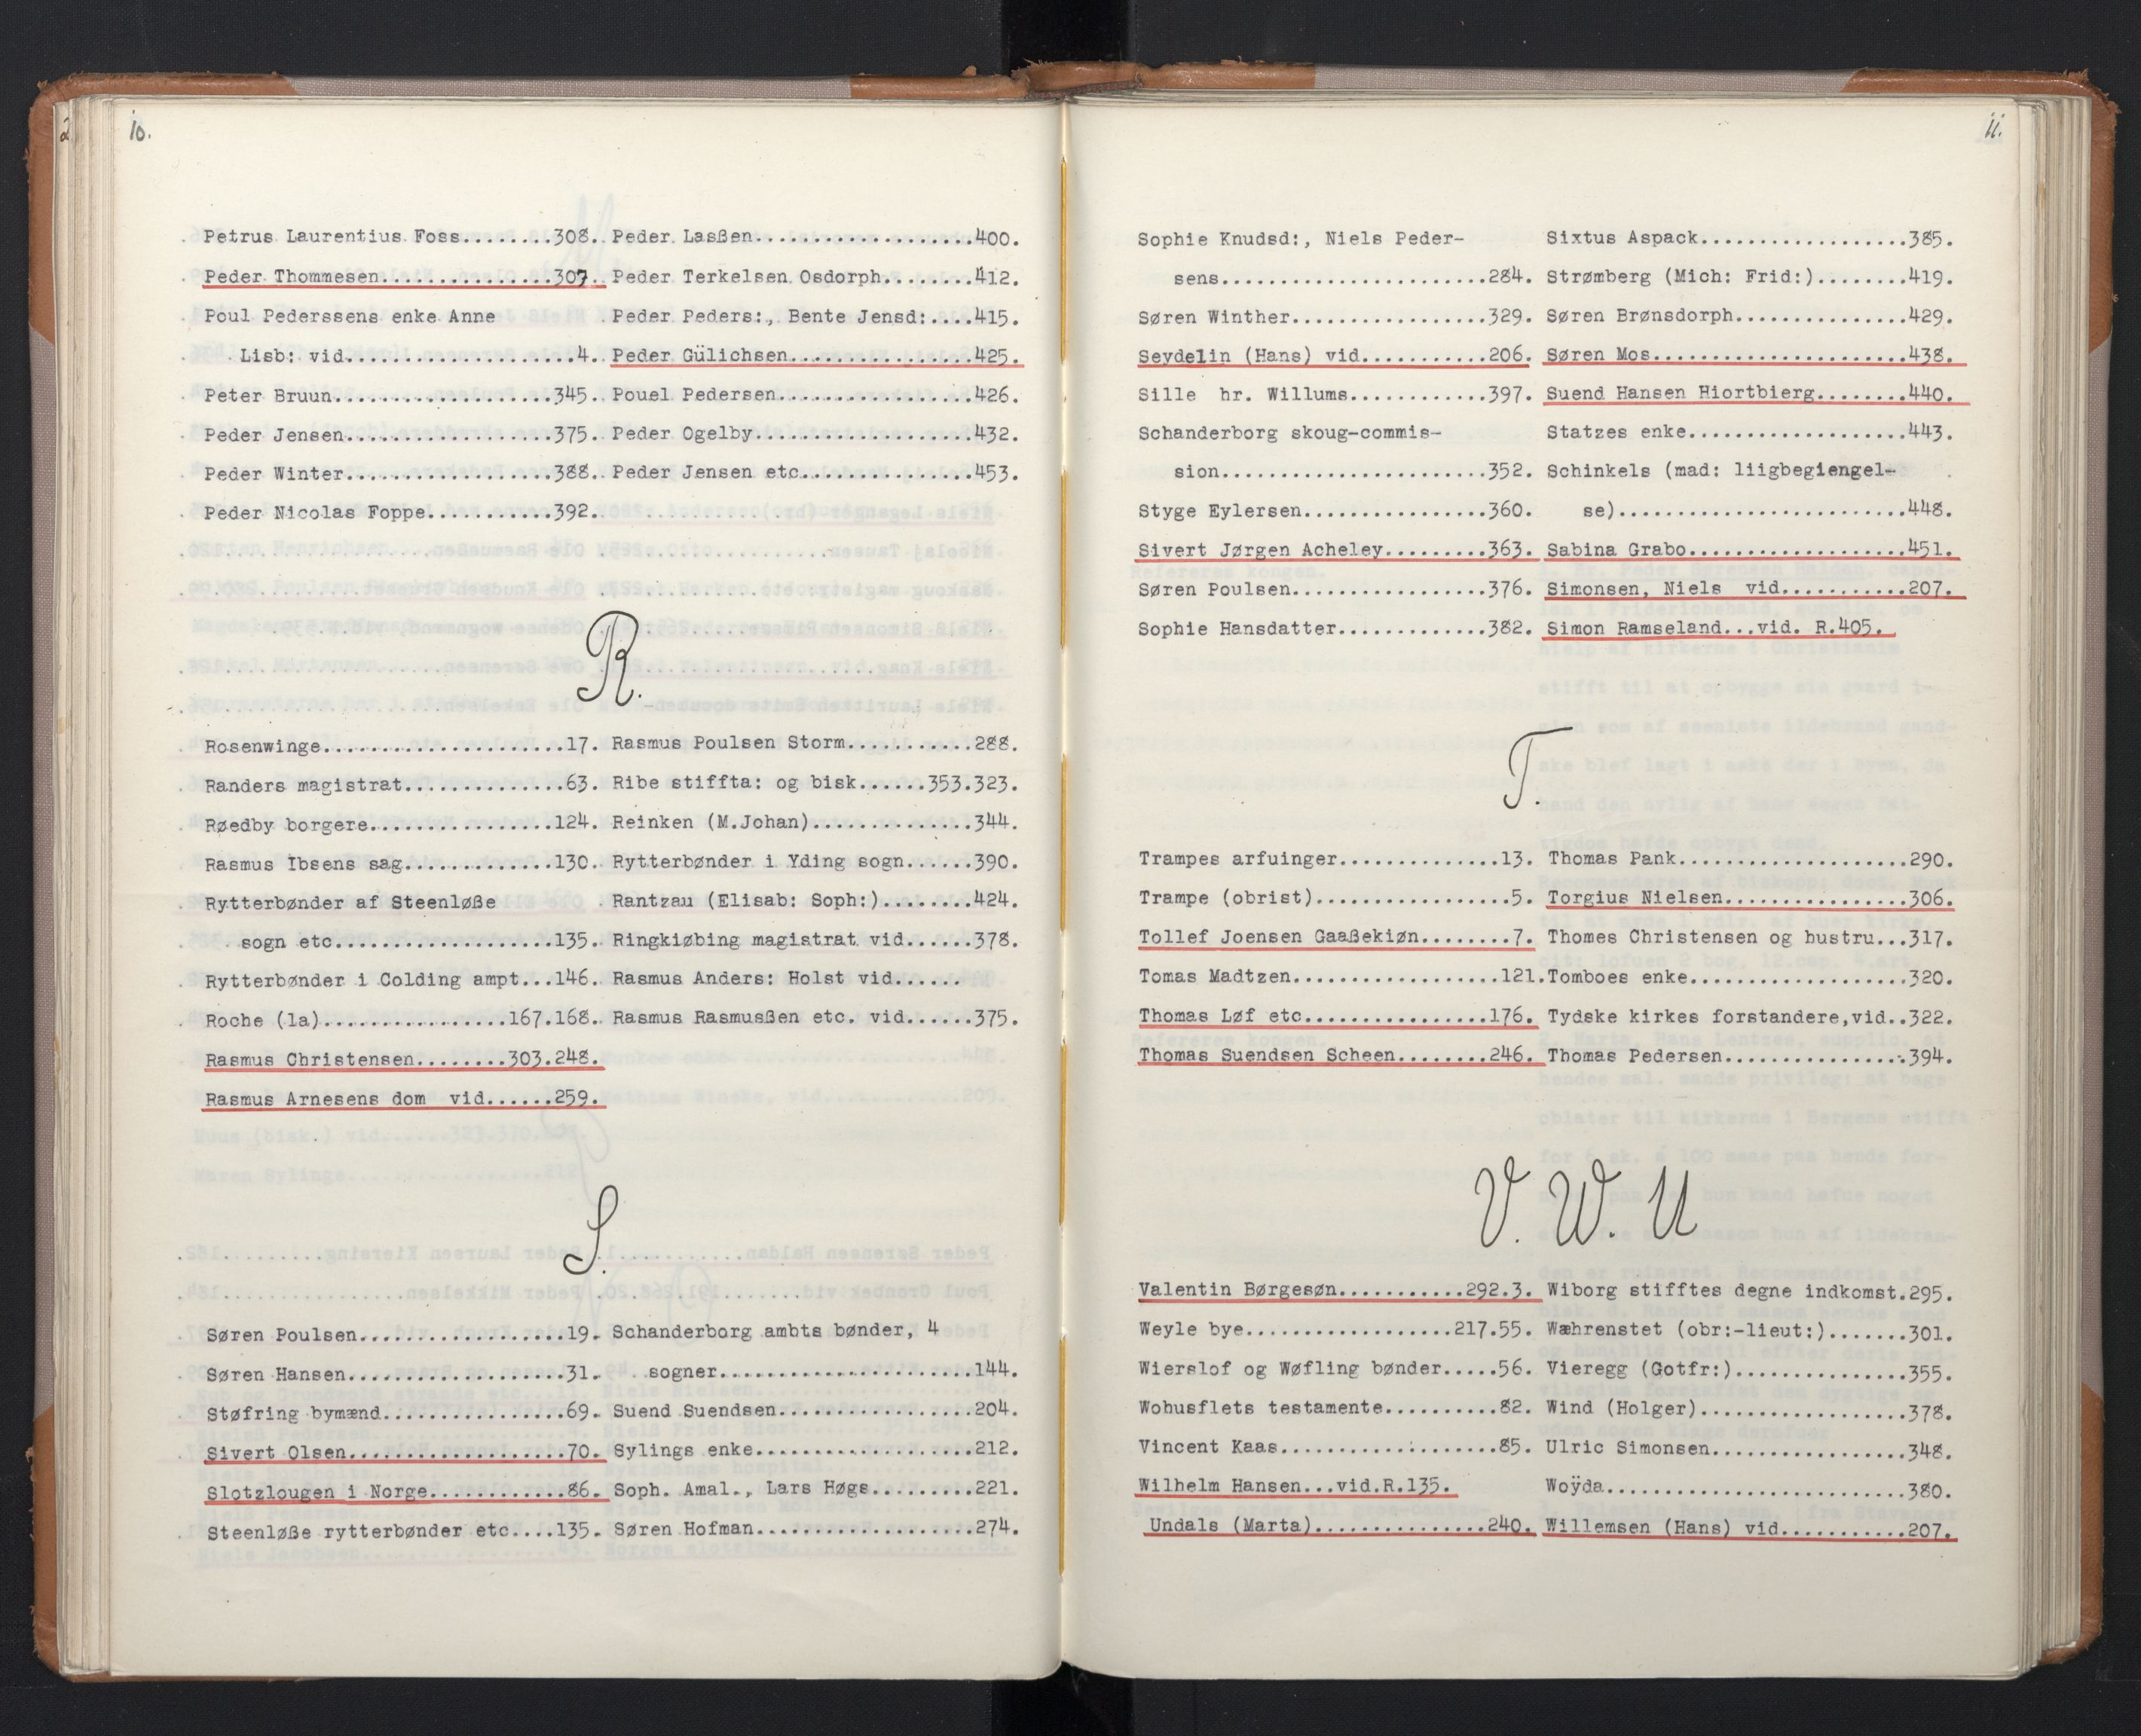 10.
Petrus Laurentius Foss........308.
Peder Thommesen...............307.
Poul Pederssens enke Anne
Lisb: vid....................4.
Peter Bruun...................345.
Peder Jensen..................375.
Peder Winter..................388.
Peder Nicolas Foppe...........392.
Peder Lasßen...................400.
Peder Terkelsen Osdorph........412.
Peder Peders:, Bente Jensd:....415.
Peder Gülichsen................425.
Pouel Pedersen.................426.
Peder Ogelby...................432.
Peder Jensen etc...............453.
R.
Rosenwinge.....................17.
Randers magistrat..............63.
Røedby borgere................124.
Rasmus Ibsens sag.............130.
Rytterbønder af Steenløße
sogn etc...................135.
Rytterbønder i Colding ampt...146.
Roche (la)................167.168.
Rasmus Christensen........303.248.
Rasmus Arnesens dom vid......259.
Rasmus Poulsen Storm...........288.
Ribe stiffta: og bisk......353.323.
Reinken (M.Johan)..............344.
Rytterbønder i Yding sogn......390.
Rantzau (Elisab: Soph:)........424.
Ringkiøbing magistrat vid......378.
Rasmus Anders: Holst vid......
Rasmus Rasmusßen etc. vid......375.
S.
Søren Poulsen..................19.
Søren Hansen...................31.
Støfring bymænd................69.
Sivert Olsen...................70.
Slotzlougen i Norge............86.
Steenløße rytterbønder etc....135.
Schanderborg ambts bønder, 4
sogner......................144.
Suend Suendsen.................204.
Sylings enke...................212.
Soph. Amal., Lars Høgs.........221.
Søren Hofman...................274.
11.
Sophie Knudsd:, Niels Peder-
sens.......................284.
Søren Winther.................329.
Seydelin (Hans) vid...........206.
Sille hr. Willums............397.
Schanderborg skoug-commis-
sion.......................352.
Styge Eylersen................360.
Sivert Jørgen Acheley.........363.
Søren Poulsen.................376.
Sophie Hansdatter.............382.
Sixtus Aspack..................385.
Strømberg (Mich: Frid:)........419.
Søren Brønsdorph...............429.
Søren Mos......................438.
Suend Hansen Hiortbierg........440.
Statzes enke...................443.
Schinkels (mad: liigbegiengel-
se).........................448.
Sabina Grabo...................451.
Simonsen, Niels vid...........207.
Simon Ramseland...vid. R.405.
T.
Trampes arfuinger..............13.
Trampe (obrist).................5.
Tollef Joensen Gaaßekiøn........7.
Tomas Madtzen..................121.
Thomas Løf etc................176.
Thomas Suendsen Scheen........246.
Thomas Pank....................290.
Torgius Nielsen................306.
Thomes Christensen og hustru...317.
Tomboes enke...................320.
Tydske kirkes forstandere,vid..322.
Thomas Pedersen................394.
V. W. U
Valentin Børgesøn...........292.3.
Weyle bye..................217.55.
Wierslof og Wøfling bønder.....56.
Wohusflets testamente..........82.
Vincent Kaas...................85.
Wilhelm Hansen...vid.R.135.
Undals (Marta)................240.
Wiborg stifftes degne indkomst.295.
Wæhrenstet (obr:-lieut:).......301.
Vieregg (Gotfr:)...............355.
Wind (Holger)..................378.
Ulric Simonsen.................348.
Woÿda..........................380.
Willemsen (Hans) vid...........207.